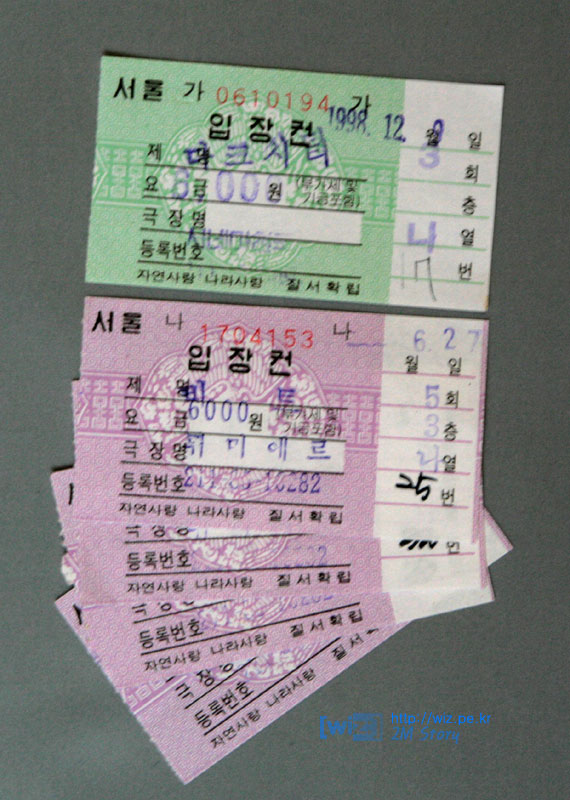 서울 가 0610194 가
1998. 12.
입장권
월 일
제 명
3 회
요 금 원 (부가세 및 기금포함)
층
극장명
4 열
등록번호
17 번
자연사랑 나라사랑 질서확립
서울 나 1704153 나
6. 27
입장권
월 일
제 명 비 트
5 회
요 금 6000 원 (부가세 및 기금포함)
3 층
극장명 뤼미에르
열
등록번호
25 번
자연사랑 나라사랑 질서확립
극장명
번
등록번호
자연사랑 나라사랑 질서확립
등록번호
자연사랑 나라사랑 질서확립
극장명
등록번호
자연사랑 나라사랑 질서
http://wiz.pe.kr
JM Story